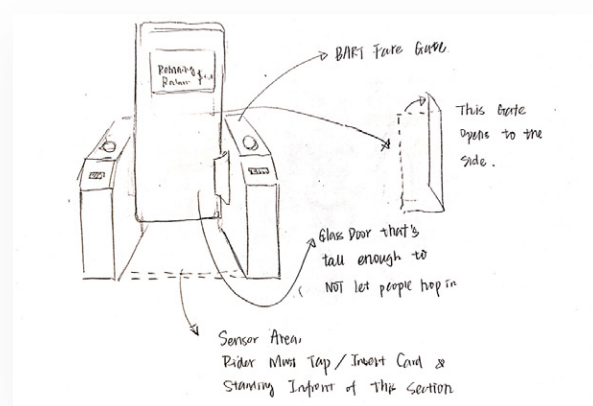 Remaining
BART Fare Gate
This Gate
opens to the
side.
Glass Door that's
tall enough to
NOT let people hop in
Sensor Area,
Rider Must Tap / Insert Card &
Standing Infront of This Section